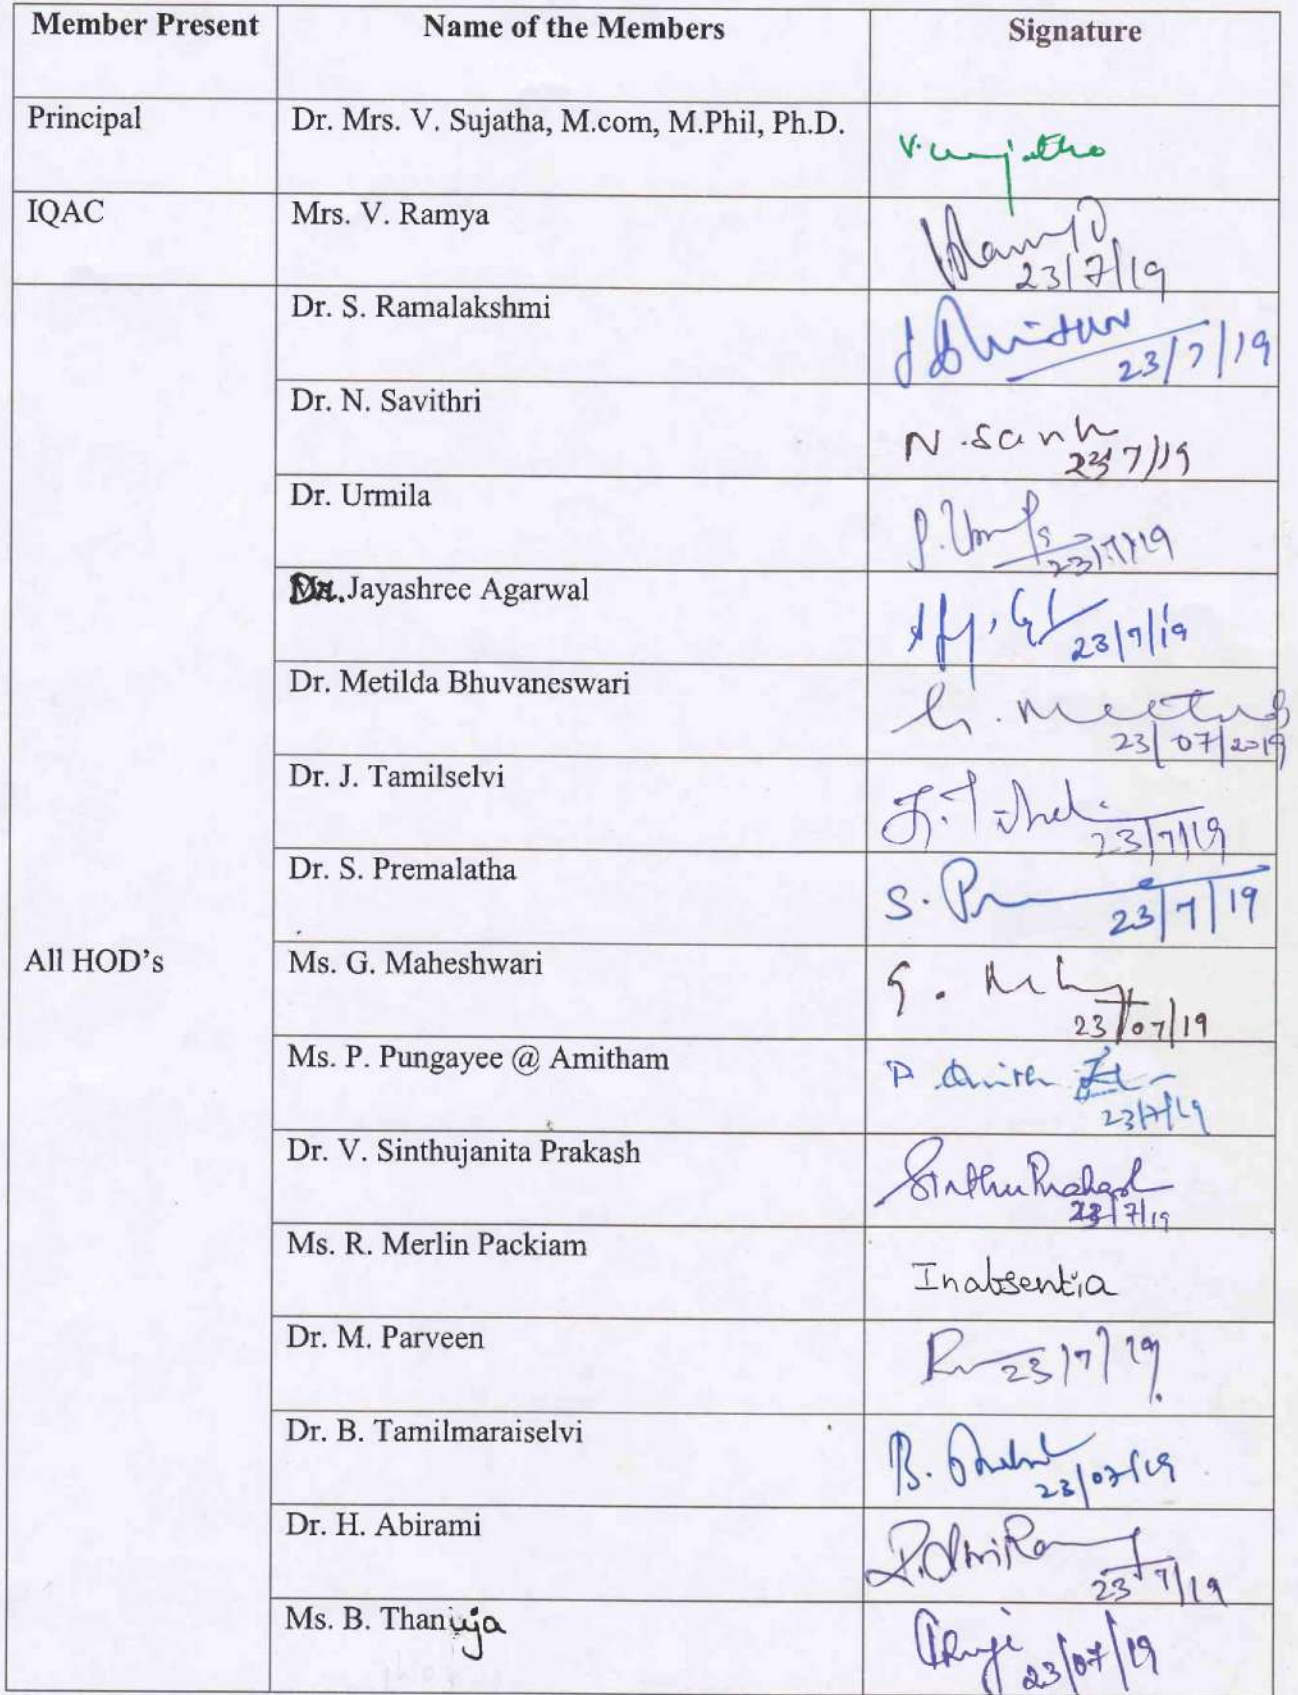 Member Present Name of the Members Signature
Principal Dr. Mrs. V. Sujatha, M.com, M.Phil, Ph.D. V. Sujatha
IQAC Mrs. V. Ramya
23/7/19
Dr. S. Ramalakshmi
23/7/19
Dr. N. Savithri N.
23/7/19
Dr. Urmila
23/7/19
Dr. Jayashree Agarwal
23/7/19
Dr. Metilda Bhuvaneswari
23/07/2019
Dr. J. Tamilselvi
23/7/19
Dr. S. Premalatha S.
23/7/19
All HOD's Ms. G. Maheshwari G.
23/07/19
Ms. P. Pungayee @ Amitham P
23/7/19
Dr. V. Sinthujanita Prakash Sinthu Prakash
23/7/19
Ms. R. Merlin Packiam Inabsentia
Dr. M. Parveen 23/7/19
Dr. B. Tamilmaraiselvi B.
23/07/19
Dr. H. Abirami
23/7/19
Ms. B. Thanuja
23/07/19